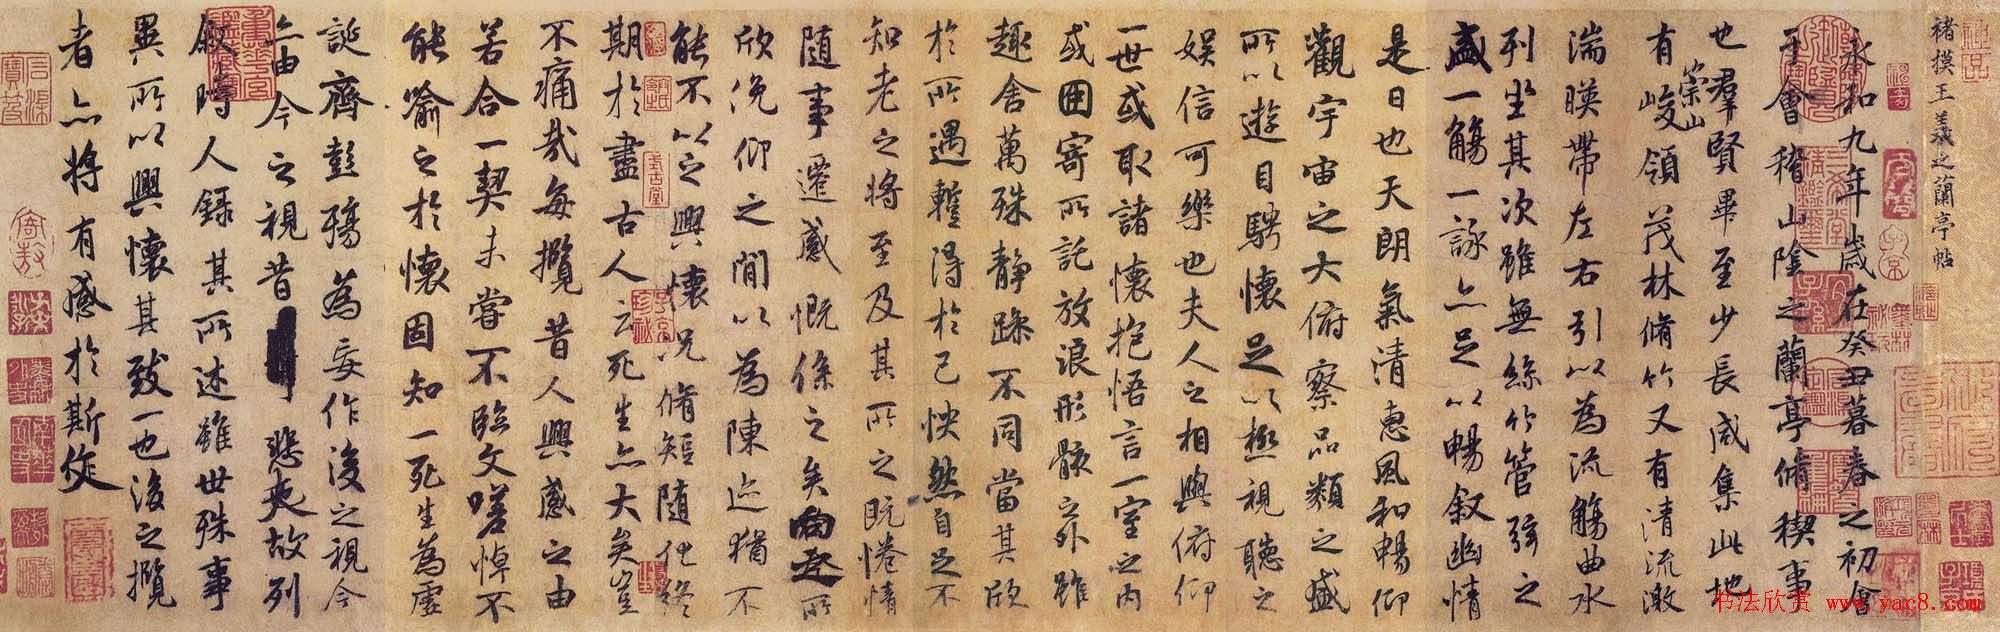 褚摸王羲之蘭亭帖
永和九年歲在癸丑暮春之初會
于會稽山陰之蘭亭脩禊事
也羣賢畢至少長咸集此地
有崇山峻領茂林脩竹又有清流激
湍暎帶左右引以為流觴曲水
列坐其次雖無絲竹管弦之
盛一觴一詠亦足以暢叙幽情
是日也天朗氣清惠風和暢仰
觀宇宙之大俯察品類之盛
所以遊目騁懷足以極視聽之
娛信可樂也夫人之相與俯仰
一世或取諸懷抱悟言一室之內
或因寄所託放浪形骸之外雖
趣舍萬殊靜躁不同當其欣
於所遇蹔得於己怏然自足不
知老之將至及其所之既惓情
隨事遷感慨係之矣向之所
欣俛仰之閒以為陳迹猶不
能不以之興懷況脩短隨化終
期於盡古人云死生亦大矣豈
不痛哉每攬昔人興感之由
若合一契未嘗不臨文嗟悼不
能喻之於懷固知一死生為虛
誕齊彭殤為妄作後之視今
亦由今之視昔悲夫故列
叙時人錄其所述雖世殊事
異所以興懷其致一也後之攬
者亦將有感於斯文
式古堂
书法欣赏 www.yac8.com